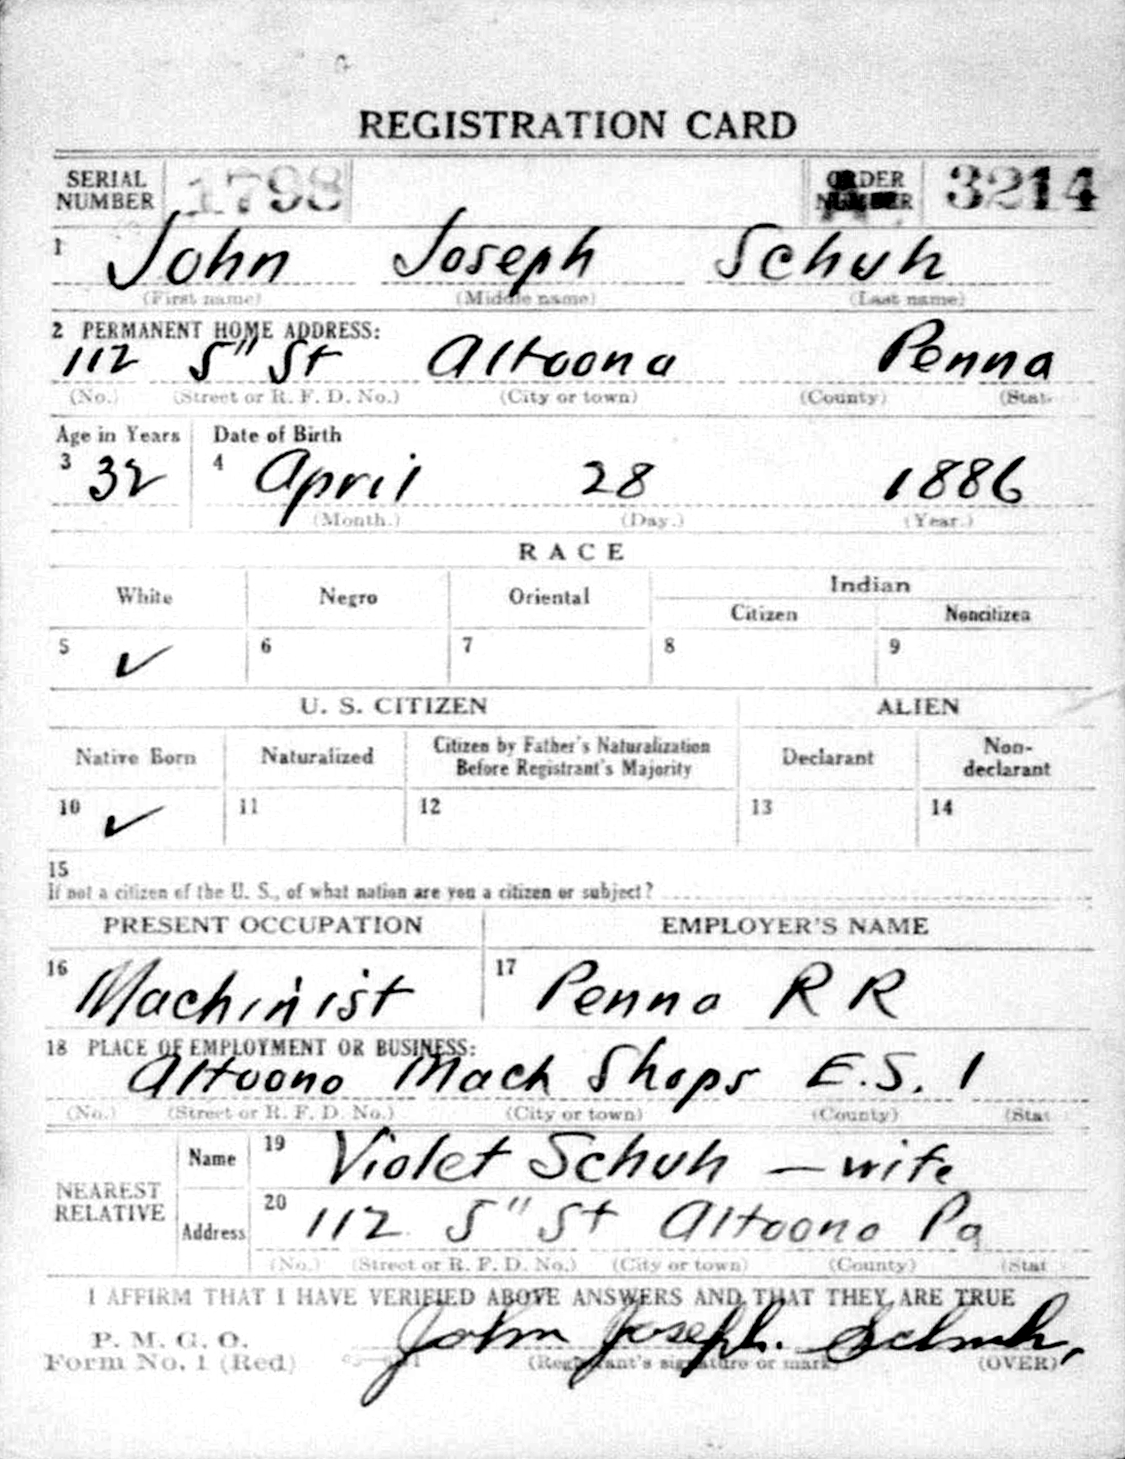 REGISTRATION CARD
SERIAL NUMBER 1798 ORDER NUMBER 3214
1 John Joseph Schuh
(First name) (Middle name) (Last name)
2 PERMANENT HOME ADDRESS:
112 5" St Altoona Penna
(No.) (Street or R. F. D. No.) (City or town) (County) (Stat
Age in Years Date of Birth
3 32 4 April 28 1886
(Month.) (Day.) (Year.)
RACE
White Negro Oriental Indian
Citizen Noncitizen
5 ✓ 6 7 8 9
U. S. CITIZEN ALIEN
Native Born Naturalized Citizen by Father's Naturalization Before Registrant's Majority Declarant Non-declarant
10 ✓ 11 12 13 14
15
If not a citizen of the U. S., of what nation are you a citizen or subject?
PRESENT OCCUPATION EMPLOYER'S NAME
16 Machinist 17 Penna R R
18 PLACE OF EMPLOYMENT OR BUSINESS:
Altoona Mach Shops E.S. 1
(No.) (Street or R. F. D. No.) (City or town) (County) (Stat
NEAREST RELATIVE
Name 19 Violet Schuh — wife
Address 20 112 5" St Altoona Pa
(No.) (Street or R. F. D. No.) (City or town) (County) (Stat
I AFFIRM THAT I HAVE VERIFIED ABOVE ANSWERS AND THAT THEY ARE TRUE
P. M. G. O.
Form No. 1 (Red) John Joseph Schuh,
(Registrant's signature or mark) (OVER)